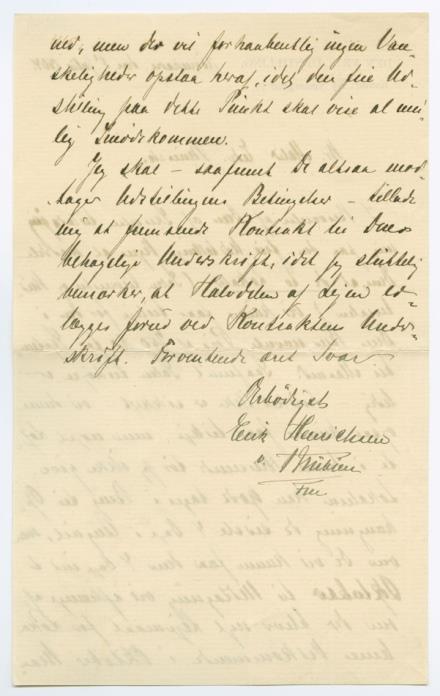 ned, men der vil forhaabentlig ingen Van-
skeligheder opstaa heraf, idet den frie Ud-
stilling paa dette Punkt skal vise al mu-
lig Imødekommen.
Jeg skal – saafremt De altsaa mod-
tager Udstillingens Betingelser – tillade
mig at fremsende Kontrakt til Deres
behagelige Underskrift, idet jeg sluttelig
bemærker, at Halvdelen af Lejen ed-
lægges forud ved Kontraktens Under-
skrift. Forventende æret Svar
Ærbødigst
Erik Henrichsen
Fm